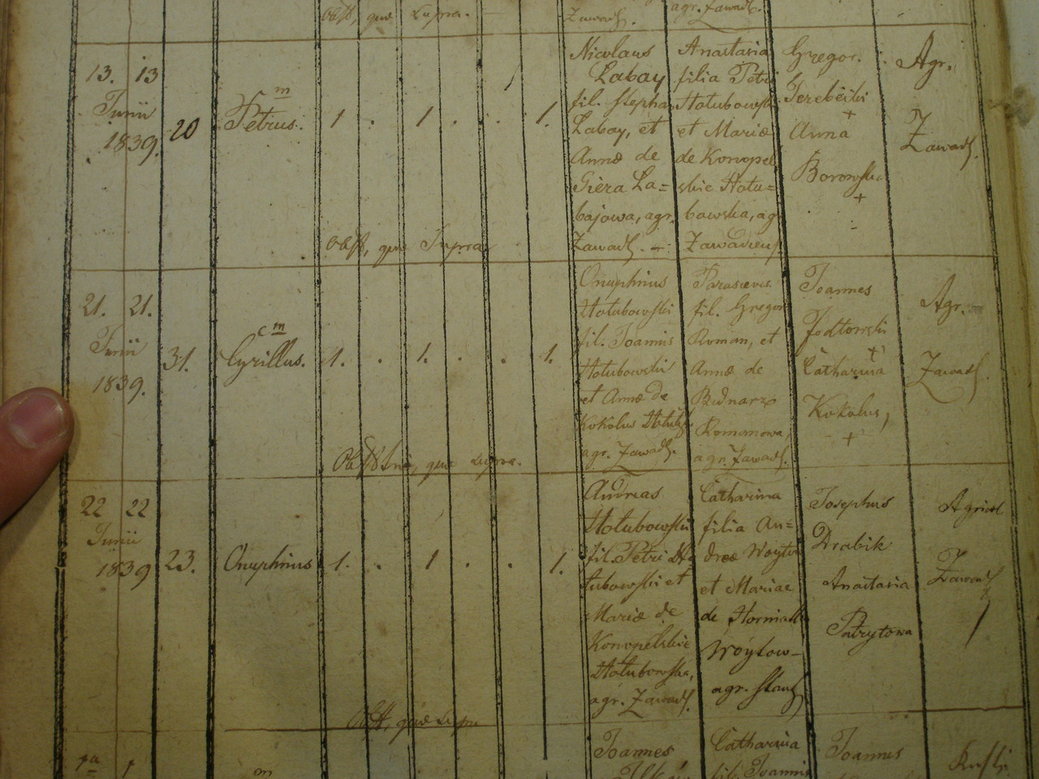 Obst. quæ supra.
Zawads.
agr. Zawads.
13. 13
Junii
1839.
20
m
Petrus.
1 . 1 . . 1.
Nicolaus
Labay
fil. Stepha
Labay, et
Annæ de
Giera La=
bajowa, agr.
Zawads.
Anastasia
filia Petri
Hołubowski
et Mariæ
de Konopel
skie Hołu=
bowska, ag
Zawadiens.
Gregor.
Terebecki
+
Anna
Borowska
+
Agr.
Zawads.
Obst, quæ Supra
21. 21.
Junii
1839.
31.
m
Cyrillus.
1. . 1. . . 1.
Onuphrius
Hołubowski
fil. Joannis
Hołubowski
et Annæ de
Kokolus
agr. Zawads.
Parasceva
fil. Gregor
Roman, et
Annæ de
Bednarz
Romanowa,
agr. Zawads.
Joannes
Jodłowski
+
Catharina
Kokolus,
+
Agr.
Zawads.
quæ supra.
22 22
Junii
1839
23.
Onuphrius
1. . 1 . . 1.
Andreas
Hołubowski
fil. Petri Ho
łubowski et
Mariæ de
Konopelskie
Hołubowska,
agr. Zawads.
Catharina
filia An=
dreæ Woyto
et Mariae
de
Woytow-
agr.
Josephus
Drabik
Anastasia
Patrytowa
Zawads
Obst, quæ supra
1
m
Joannes
Catharina
fil. Joannis
Joannes